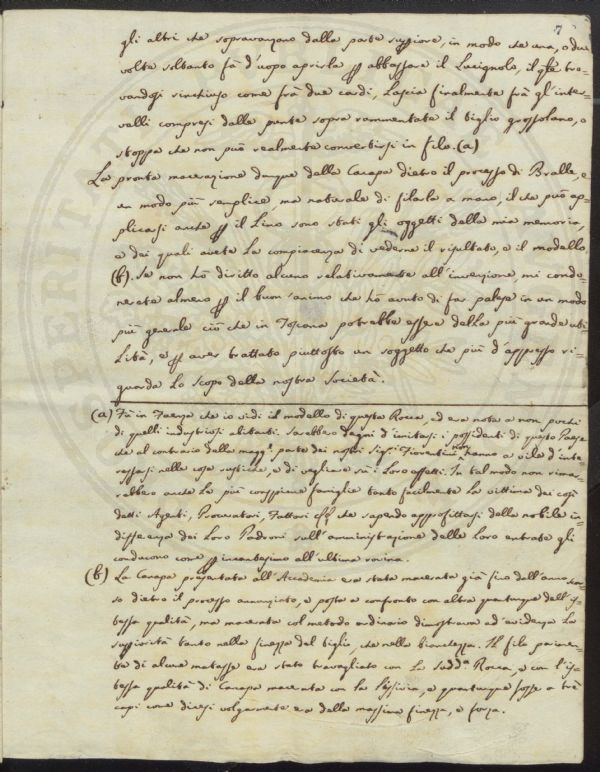 7
gli altri che sopravanzano dalla parte supᵽiore, in modo che una, o due
volte soltanto fà d'uopo aprirla ᵽ abbassare il Lucignolo, il qle tro-
vandosi rinchiuso come frà due cardi, Lascia finalmente frà gl'inter-
valli compresi dalle punte sopra rammentate il tiglio grossolano, o
stoppa che non può realmente convertirsi in filo. (a)
La pronta macerazione dunque della Canapa dietro il processo di Bralle, e
un modo più semplice, ma naturale di filarla a mano, il che può ap-
plicarsi anche ᵽ il Lino sono stati gli oggetti della mia memoria,
e dei quali avete La compiacenza di vederne il risultato, e il modello
(b). Se non hò diritto alcuno relativamente all'invenzione, mi condo-
nerete almeno ᵽ il buon'animo che hò avuto di far palese in un modo
più generale ciò che in Toscana potrebbe essere della più grande uti-
Lità, e ᵽ aver trattato piuttosto un soggetto che più d'appresso ri-
guarda Lo scopo della nostra Società.
(a) Fù in Faenza che io vidi il modello di questa Rocca, ed era nota a non pochi
di quelli industriosi abitanti. Sarebbero degni d'imitarsi i possidenti di questo Paese
che al contrario della magg.e parte dei nostri Sig.i Fiorentini non hanno a vile d'inte-
ressarsi nelle cose rustiche, e di vegliare sù i Loro affetti. In tal modo non rimar-
rebbero anche Le più conspicue famiglie tanto facilmente La vittima dei così
detti Agenti, Procuratori, Fattori che sapendo approfittarsi della nobile in-
differenza dei Loro Padroni sull'amministrazione delle Loro entrate gli
conducono come ᵽ incantesimo all'ultima rovina.
(b) La Canapa presentata all'Accademia era stata macerata già fino dall'anno scor-
so dietro il processo annunziato, e posta a confronto con altra quantunque dell'is-
tessa qualità, ma macerata col metodo ordinario dimostrava ad evidenza La
supᵽiorità tanto nella finezza del tiglio, che nella bianchezza. Il filo parimen-
te di alcune matasse era stato travagliato con La Sudd.a Rocca, e con l'is-
tessa qualità di Canapa macerata con La Lissivia, e quantunque fosse a trè
capi come dicesi volgarmente era della massima finezza, e forza.